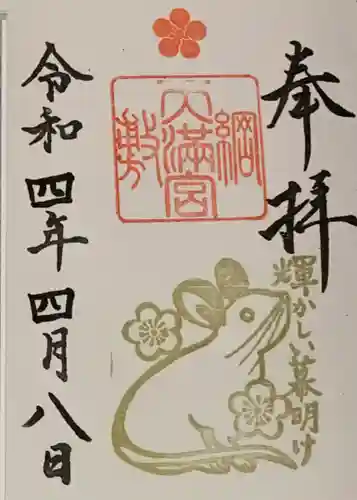 奉拝
輝かしい幕明け
綱敷天満宮
令和四年四月八日